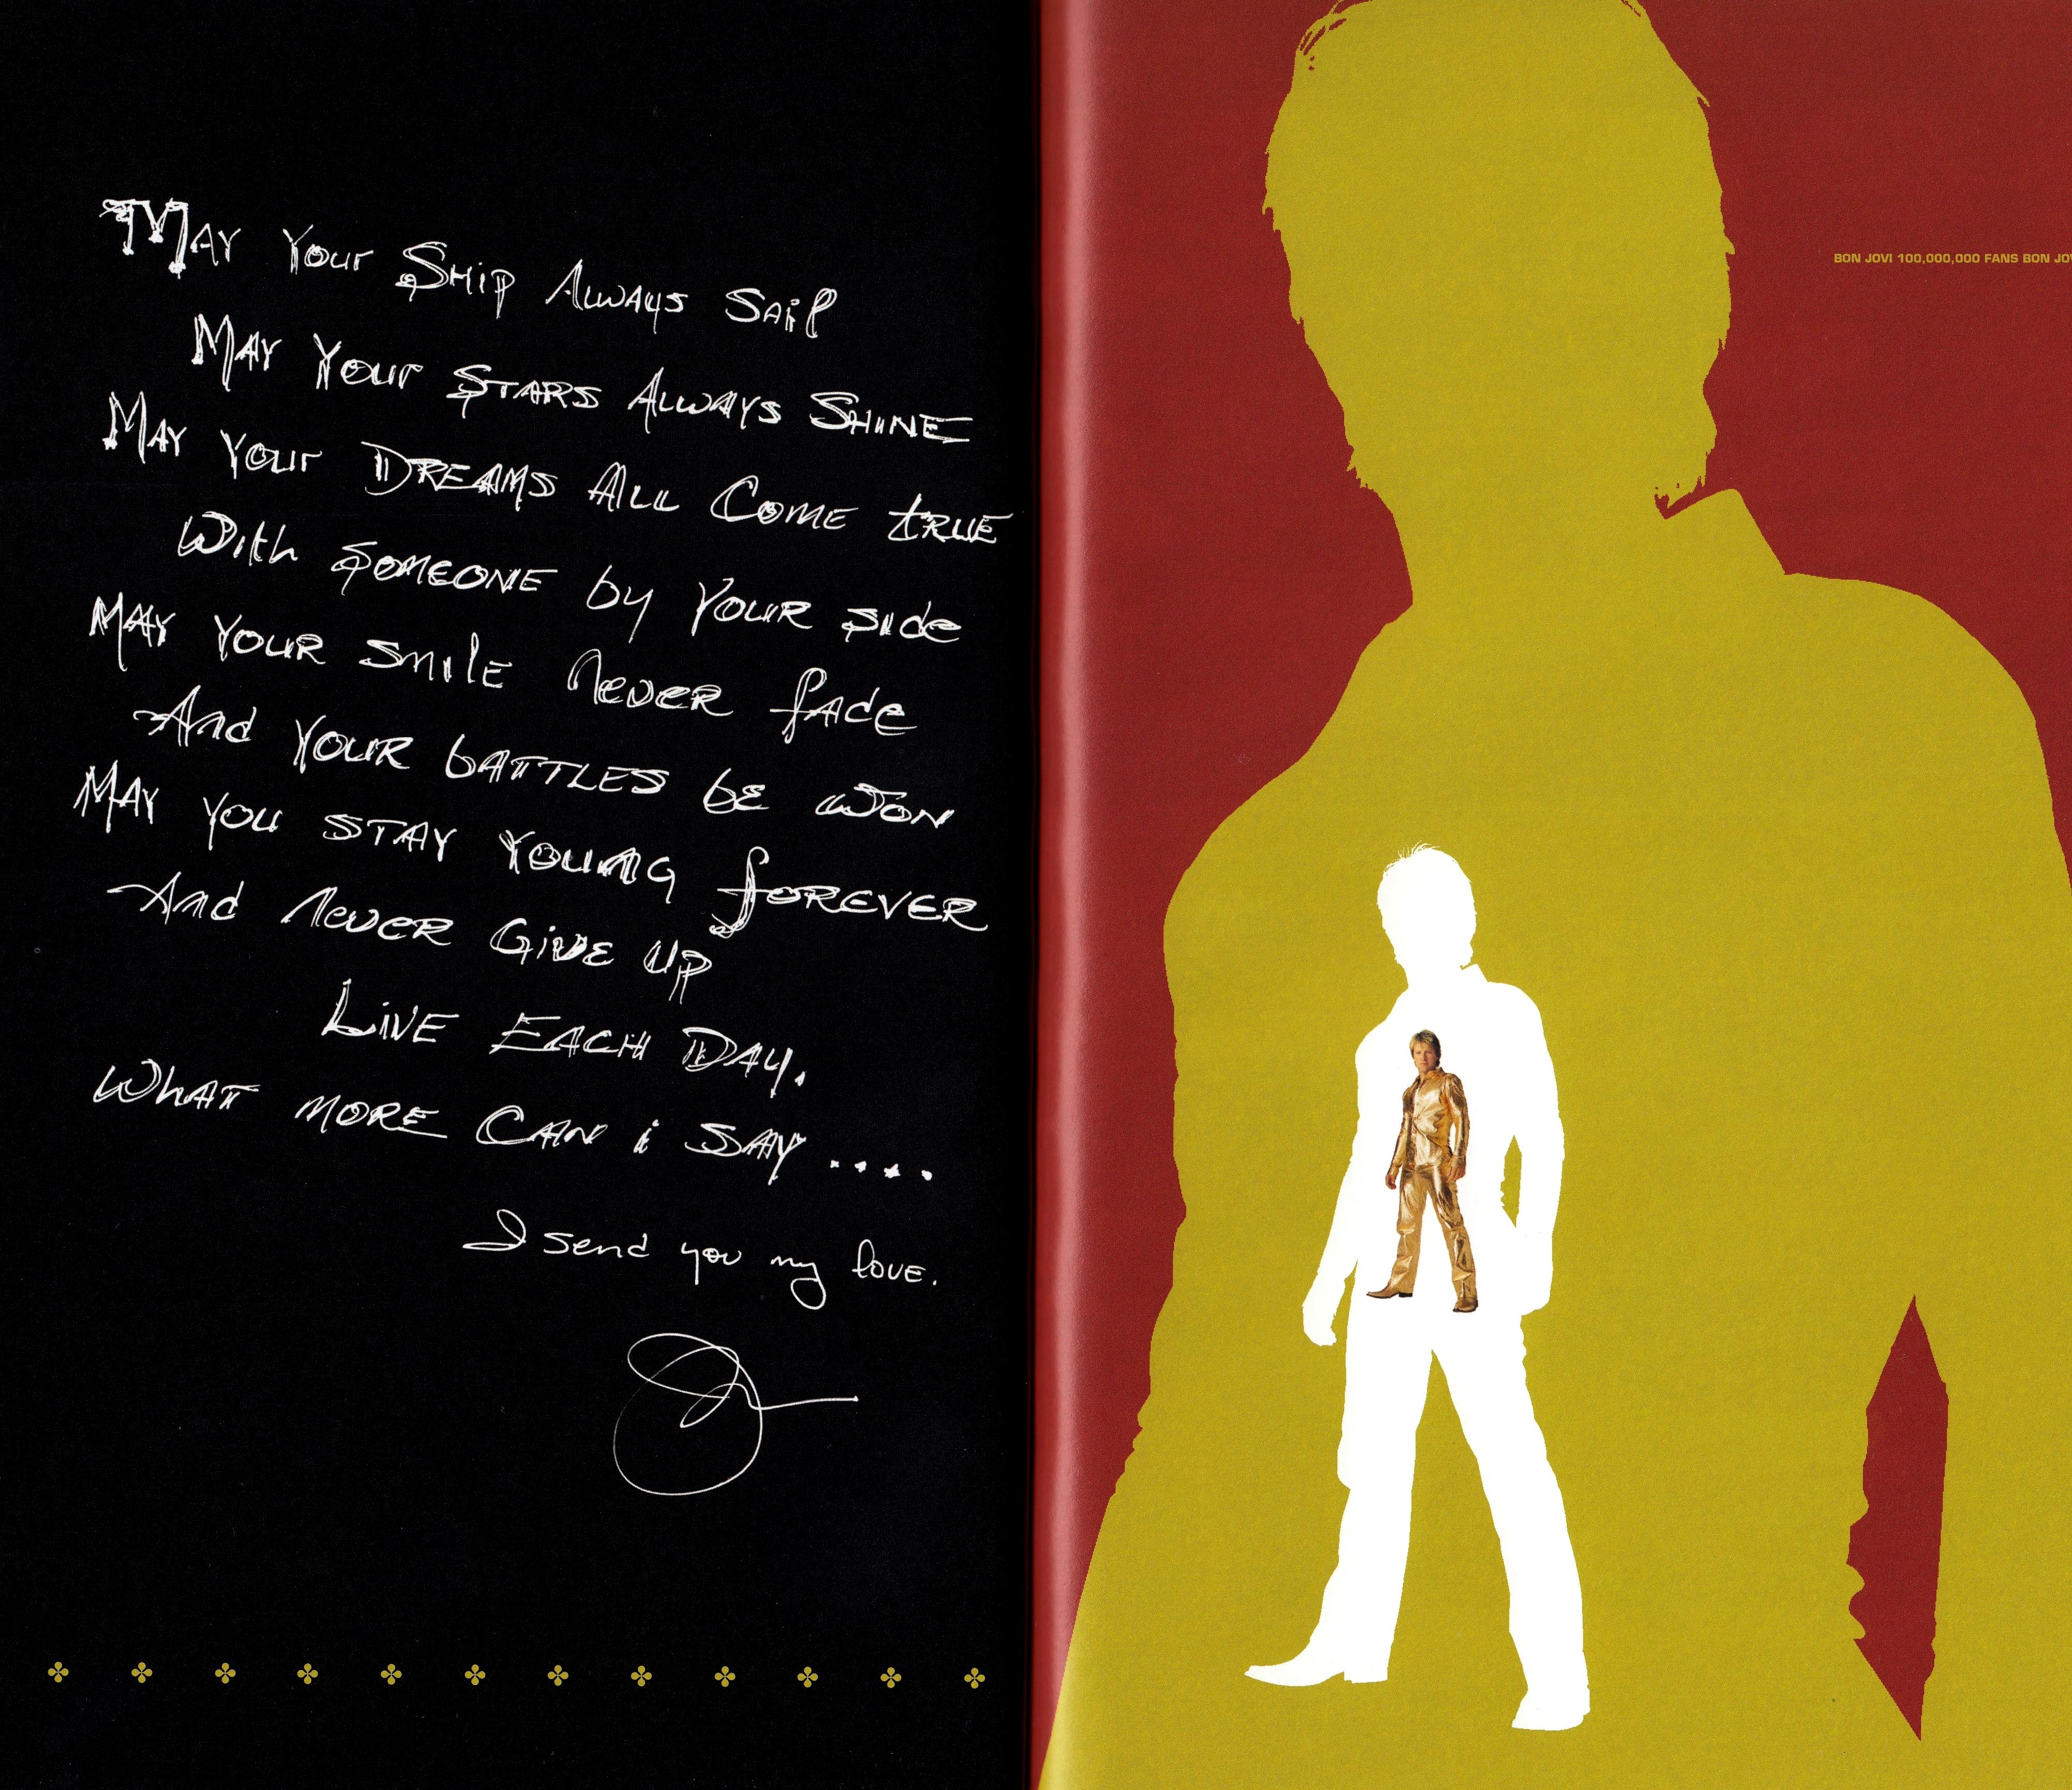 May Your Ship Always Sail
May Your Stars Always Shine
May Your Dreams All Come true
With someone by Your side
May Your smile never fade
And Your battles be won
May you stay young forever
And never Give up
Live Each Day.
What more Can i say ....
I send you my love.
BON JOVI 100,000,000 FANS BON JO